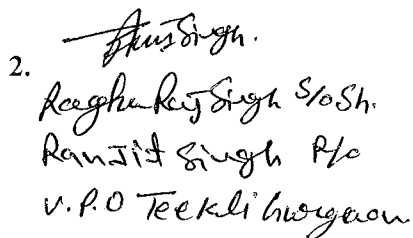 2.
Singh.
Raghu Raj Singh S/o Sh.
Ranjit Singh R/o
V.P.O Teekli Gurgaon